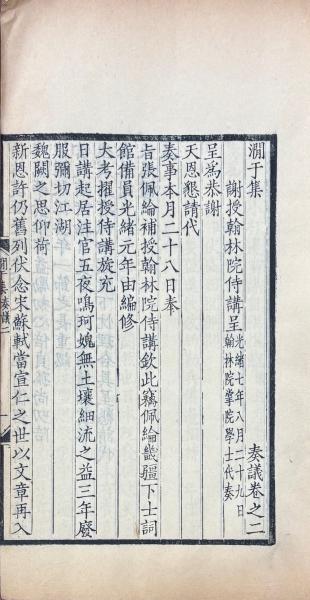 澗于集　奏議卷之二
謝授翰林院侍講呈光緒七年八月二十九日翰林院掌院學士代奏
呈為恭謝
天恩懇請代
奏事本月二十八日奉
旨張佩綸補授翰林院侍講欽此竊佩綸畿疆下士詞
館備員光緒元年由編修
大考擢授侍講旋充
日講起居注官五夜鳴珂媿無土壤細流之益三年廢
服彌切江湖
魏闕之思仰荷
新恩許仍舊列伏念宋蘇軾當宣仁之世以文章再入